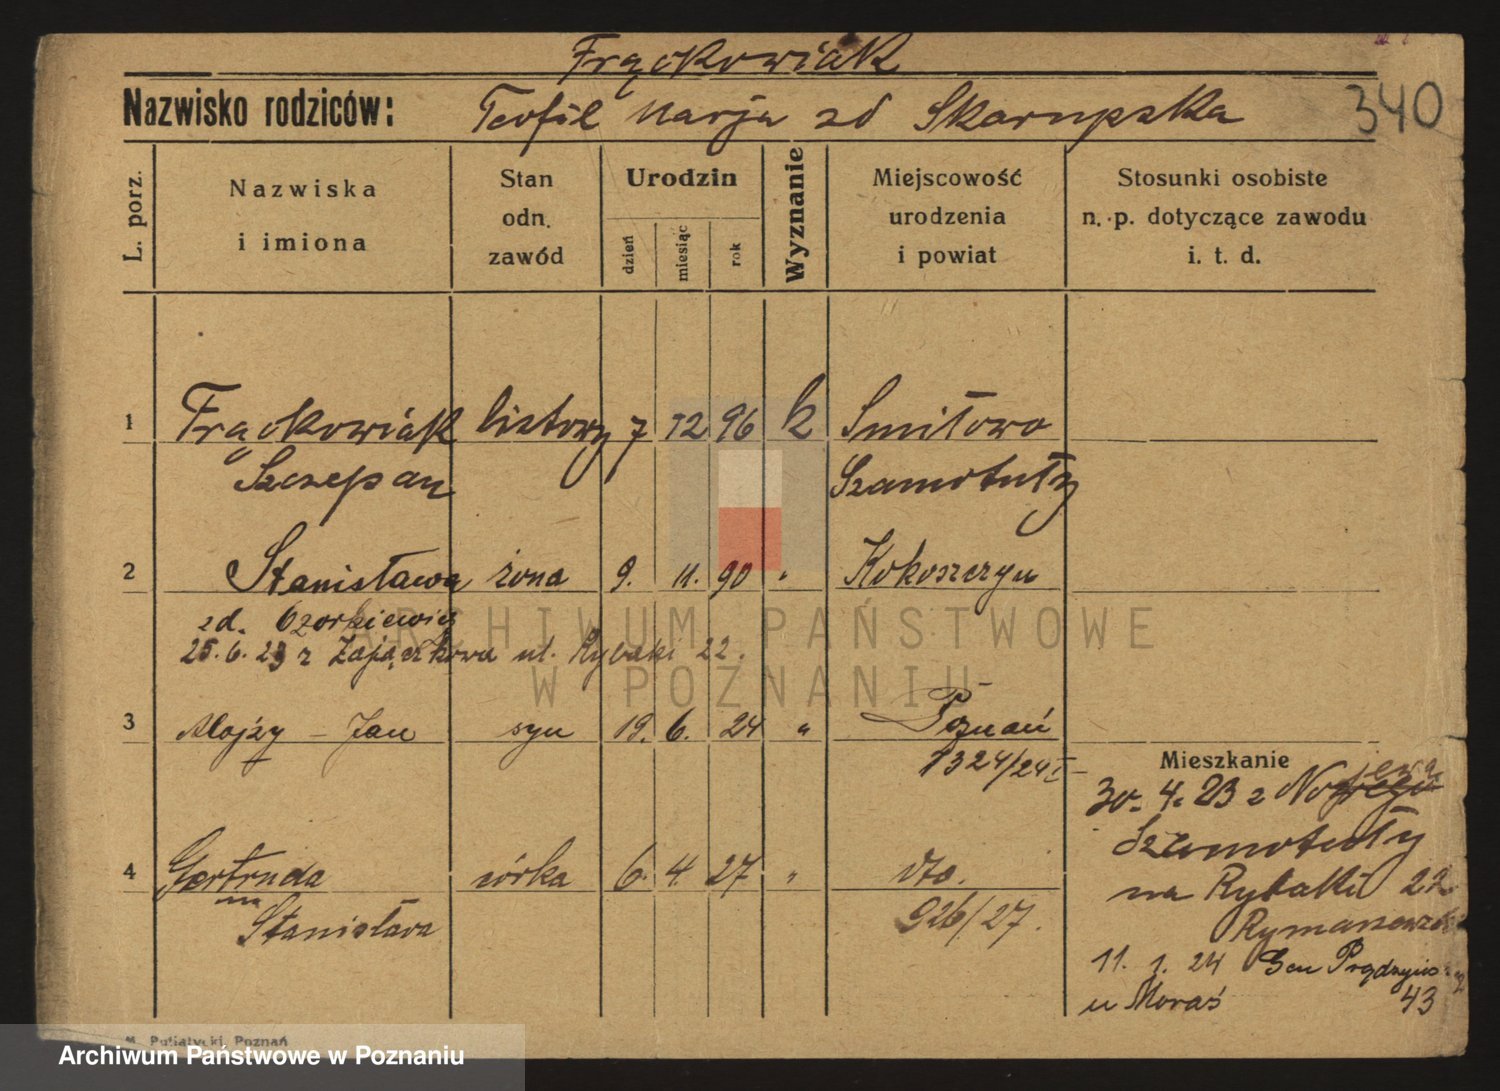 Frąckowiak
Nazwisko rodziców: Teofil Marja zd Skarupska
340
L. porz.
Nazwiska
i imiona
Stan
odn.
zawód
Urodzin
dzień
miesiąc
rok
Wyznanie
Miejscowość
urodzenia
i powiat
Stosunki osobiste
n. p. dotyczące zawodu
i. t. d.
1 Frąckowiak listowy 7 12 96 k Smiłowo
Szczepan Szamotuły
2 Stanisława żona 9. 11. 90 " Kokoszczyn
zd.
25.6.23 z Zajączkowa ul. Rybaki 22.
3 Alojzy - Jan syn 19. 6. 24 " Poznań
1324/24
Mieszkanie
30. 4. 23 z
Szamotuły
na Rybaki 22
4 Gertruda córka 6. 4. 27 " dto.
Stanisława 926/27.
11. 1. 24 Gen
u Moraś 43
M. Putiatycki, Poznań
ARCHIWUM PAŃSTWOWE
W POZNANIU
Archiwum Państwowe w Poznaniu